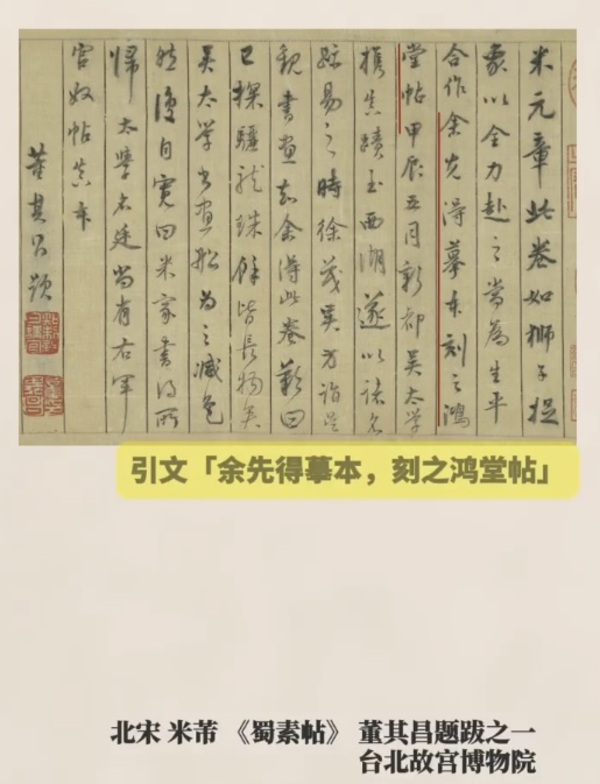 米元章此卷如狮子捉
象以全力赴之當為生平
合作余先得摹本刻之鴻
堂帖甲辰五月新都吳太學
携真蹟至西湖遂以諸名
跡易之時徐茂吳方詣吳
觀書畫知余得此卷歎曰
已探驪龍珠餘皆長物矣
吳太學書畫船為之減色
然後自寬曰米家書得所
歸太學名廷尚有右軍
官奴帖真本
董其昌題
引文「余先得摹本，刻之鸿堂帖」
北宋 米芾 《蜀素帖》 董其昌题跋之一
台北故宫博物院